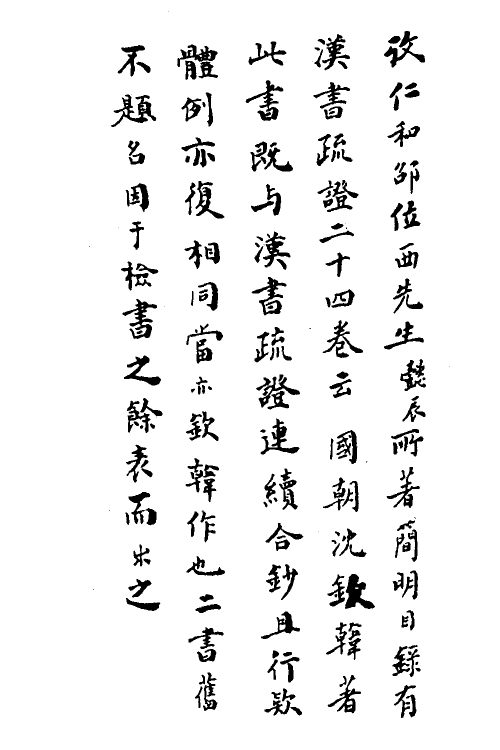 攷仁和邵位西先生懿辰所著簡明目錄有
漢書疏證二十四卷云 國朝沈欽韓著
此書既与漢書疏證連續合鈔且行欵
體例亦復相同當亦欽韓作也二書舊
不題名因于檢書之餘表而出之